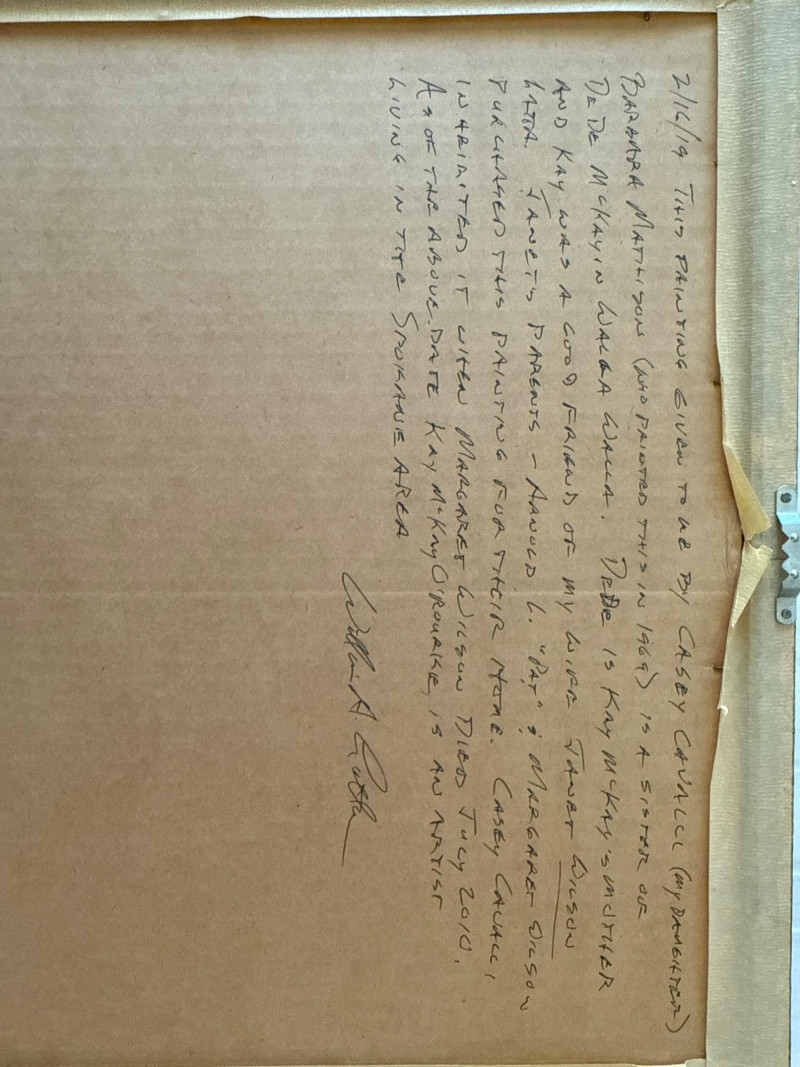 2/16/19 THIS PAINTING GIVEN TO ME BY CASEY CAVALLI (MY DAUGHTER)
BARBARA MATHISON (WHO PAINTED THIS IN 1969) IS A SISTER OF
DEDE McKAY IN WALLA WALLA. DEDE IS KAY McKAY'S MOTHER
AND KAY WAS A GOOD FRIEND OF MY WIFE JANET WILSON
JANET'S PARENTS - ARNOLD L. "PAT" & MARGARET WILSON
PURCHASED THIS PAINTING FOR THEIR HOME. CASEY CAVALLI,
INHARIDITED IT WHEN MARGARET WILSON DIED JULY 2010.
AS OF THE ABOVE DATE KAY McKAY O'ROURKE, IS AN ARTIST
LIVING IN THE SPOKANE AREA
William A.